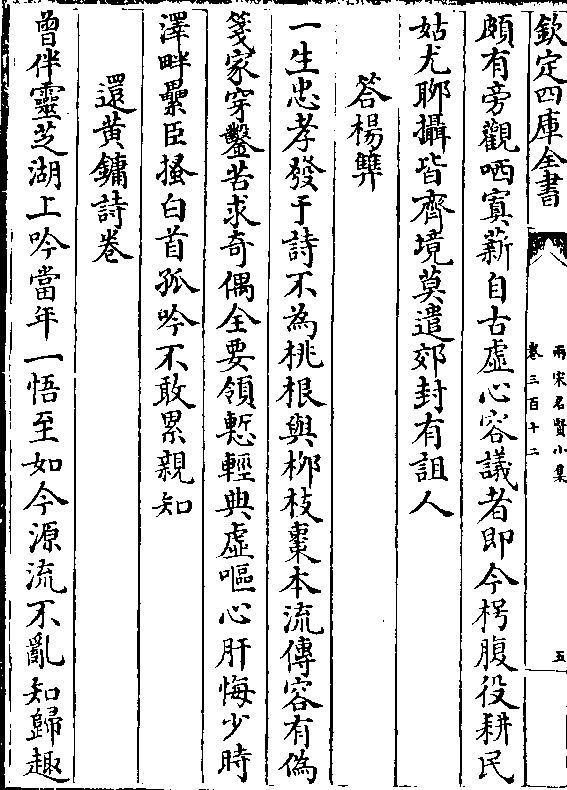 欽定四庫全書
兩宋名賢小集
卷三百十二
五
頗有旁觀哂寘薪自古虛心容議者即今枵腹役耕民
姑尤聊攝皆齊境莫遣郊封有詛人
答楊斁
一生忠孝發于詩不為桃根與栁枝稾本流傳容有偽
箋家穿鑿苦求奇偶全要領慙輕典虛嘔心肝悔少時
澤畔纍臣搔白首孤吟不敢累親知
還黄鏞詩卷
曾伴靈芝湖上吟當年一悟至如今源流不亂知歸趣